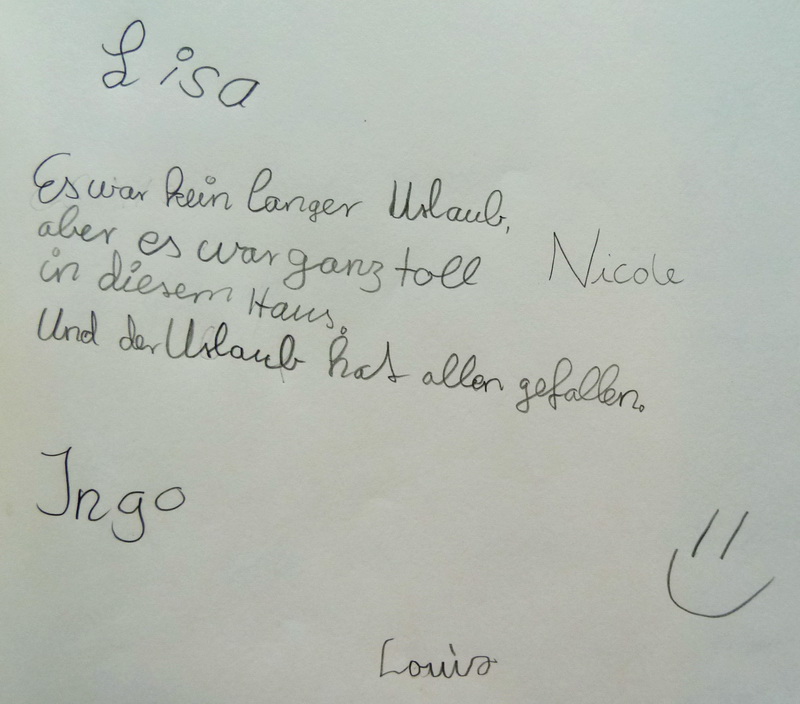 Lisa
Es war kein langer Urlaub,
aber es war ganz toll
Nicole
in diesem Haus.
Und der Urlaub hat allen gefallen.
Ingo
Louis